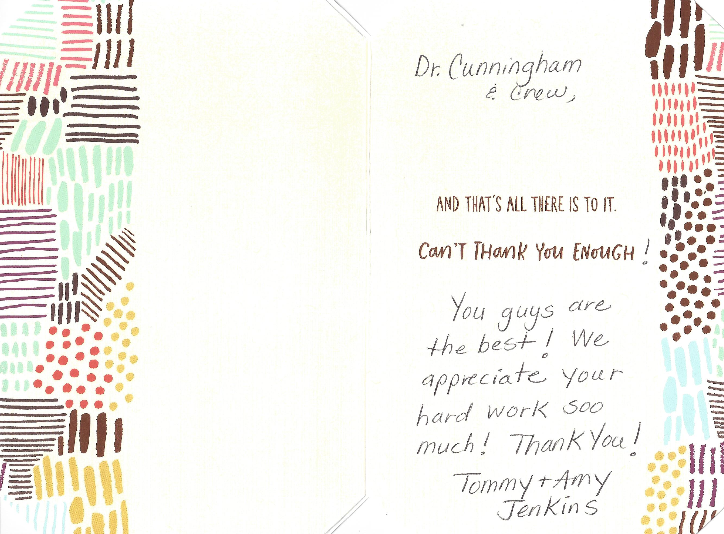 Dr. Cunningham
& Crew,
AND THAT'S ALL THERE IS TO IT.
CAN'T THANK YOU ENOUGH!
You guys are
the best! We
appreciate your
hard work soo
much! Thank You!
Tommy + Amy
Jenkins